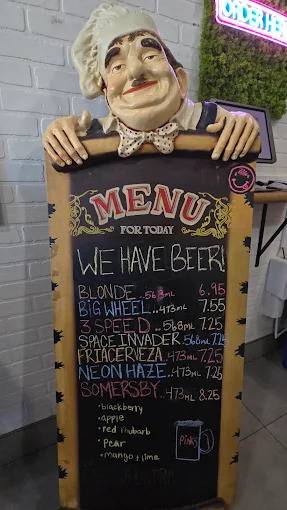 ORDER HE
MENU
FOR TODAY
WE HAVE BEER!
BLONDE...568mL 6.95
BiG WHEEL...473mL 7.55
3 SPEED...568mL 7.25
SPACE INVADER.568mL 7.25
FRIACERVEZA.473mL 7.25
NEON HAZE.473mL 7.25
SOMERSBY..473mL 8.25
•blackberry
•apple
•red rhubarb
•pear
•mango + lime
Pinky